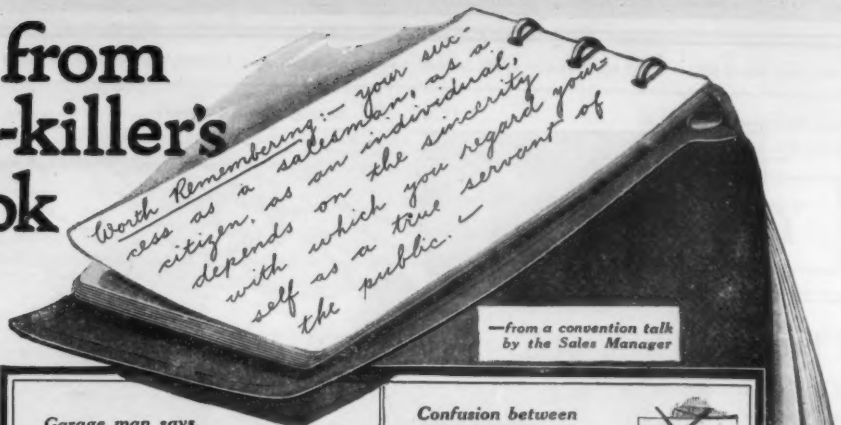 from
-killer's
ok
Worth Remembering:— your suc-
cess as a salesman, as a
citizen, as an individual,
depends on the sincerity
with which you regard your-
self as a true servant of
the public.—
—from a convention talk
by the Sales Manager
Garage man says
Confusion between